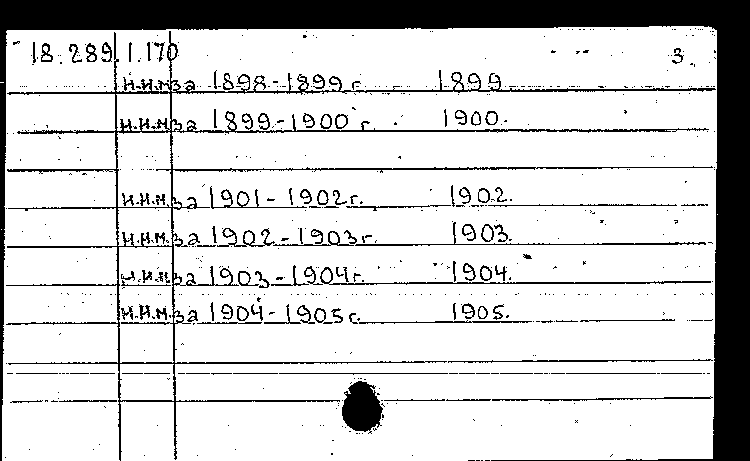 18.289.1.170 3
н.н.м за 1898-1899 г. 1899
н.н.м за 1899-1900 г. 1900.
н.н.м. за 1901-1902 г. 1902.
н.н.м. за 1902-1903 г. 1903.
н.н.м за 1903-1904 г. 1904.
н.н.м. за 1904-1905 г. 1905.